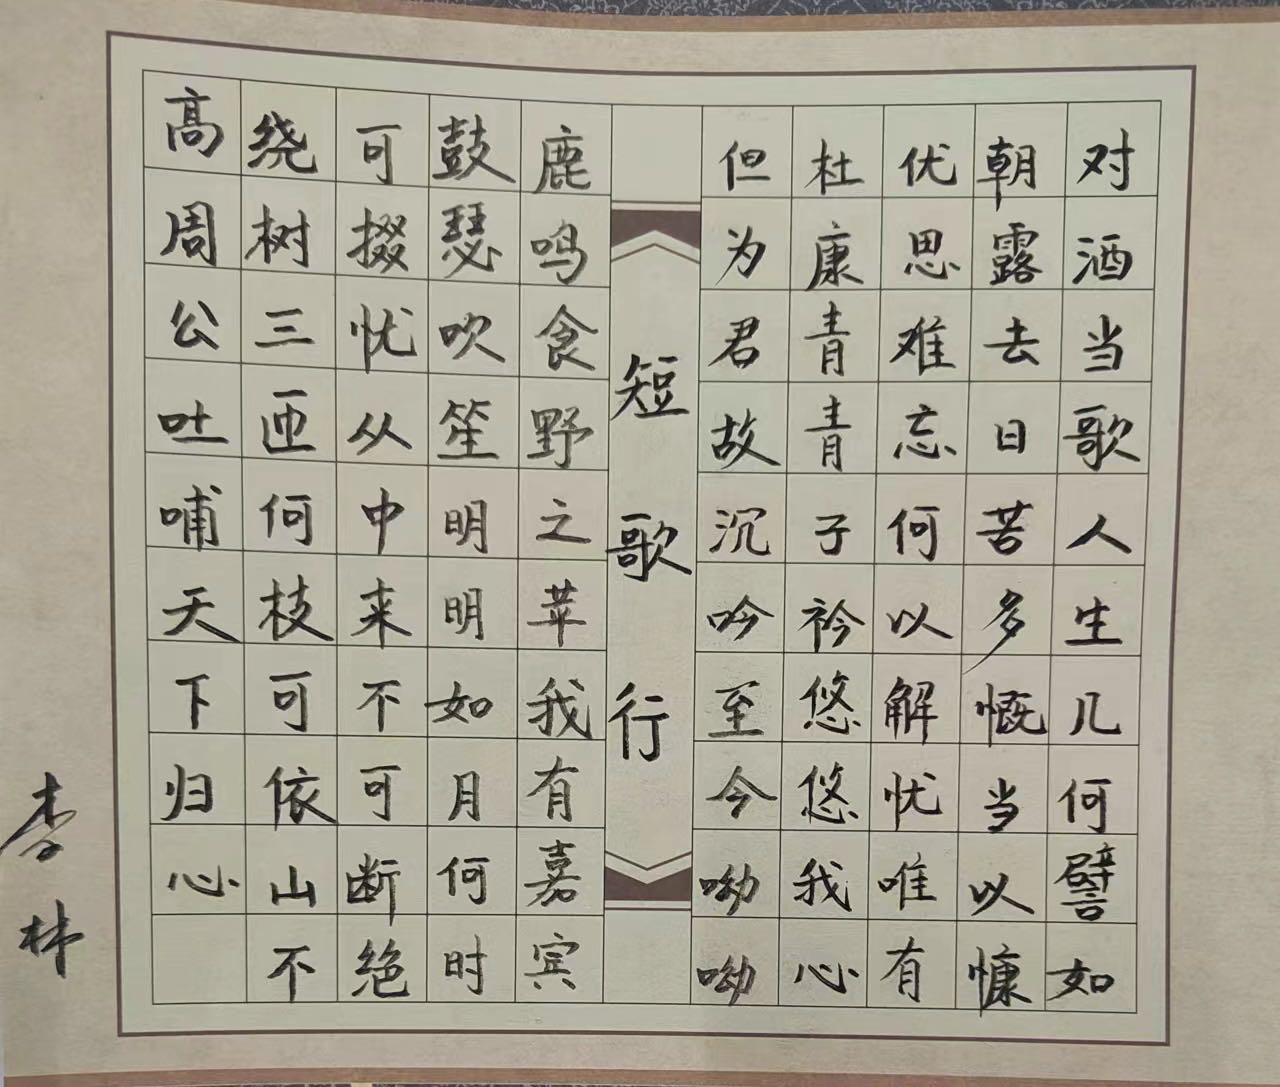 对酒当歌人生几何譬如
朝露去日苦多慨当以慷
优思难忘何以解忧唯有
杜康青青子衿悠悠我心
但为君故沉吟至今呦呦
短歌行
鹿鸣食野之苹我有嘉宾
鼓瑟吹笙明明如月何时
可掇忧从中来不可断绝
绕树三匝何枝可依山不
高周公吐哺天下归心
李林